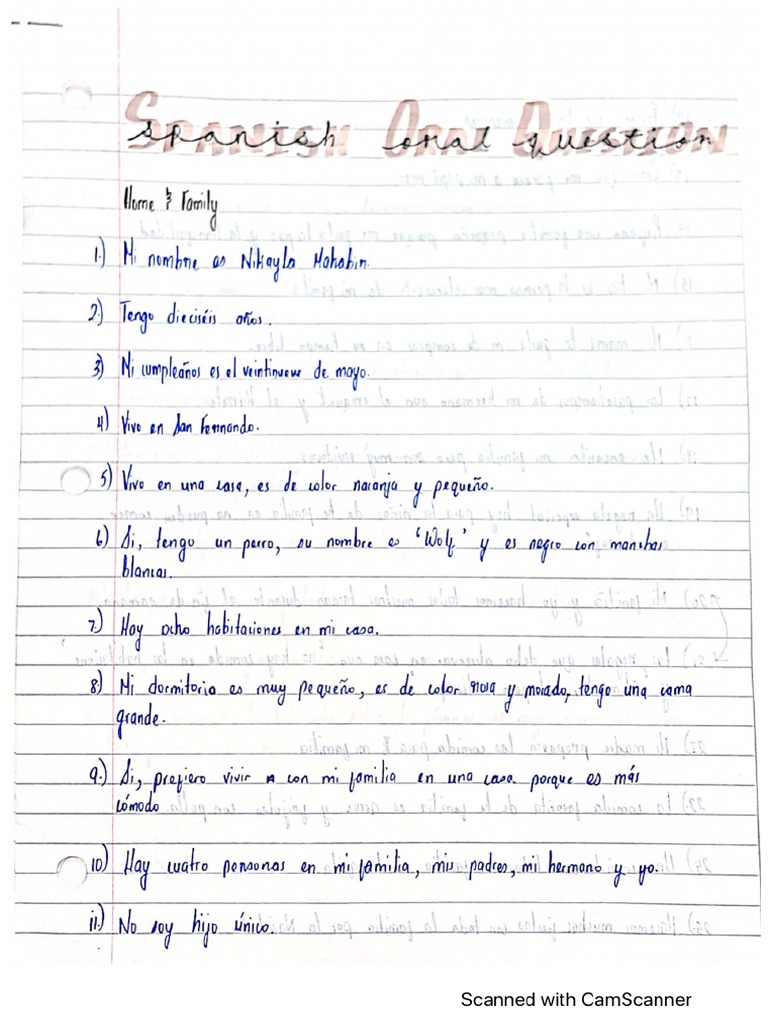 Spanish Oral Question
Home & Family
1.) Mi nombre es Nikayla Mahabir.
2.) Tengo dieciséis años.
3) Mi cumpleaños es el veintinueve de mayo.
4) Vivo en San Fernando.
5) Vivo en una casa, es de color naranja y pequeño.
6) Si, tengo un perro, su nombre es 'Wolf' y es negro con manchas
blancas.
7.) Hay ocho habitaciones en mi casa.
8) Mi dormitorio es muy pequeño, es de color rosa y morado, tengo una cama
grande.
9.) Si, prefiero vivir con mi familia en una casa porque es más
cómodo
10) Hay cuatro personas en mi familia, mis padres, mi hermano y yo.
11.) No soy hijo único.
Scanned with CamScanner